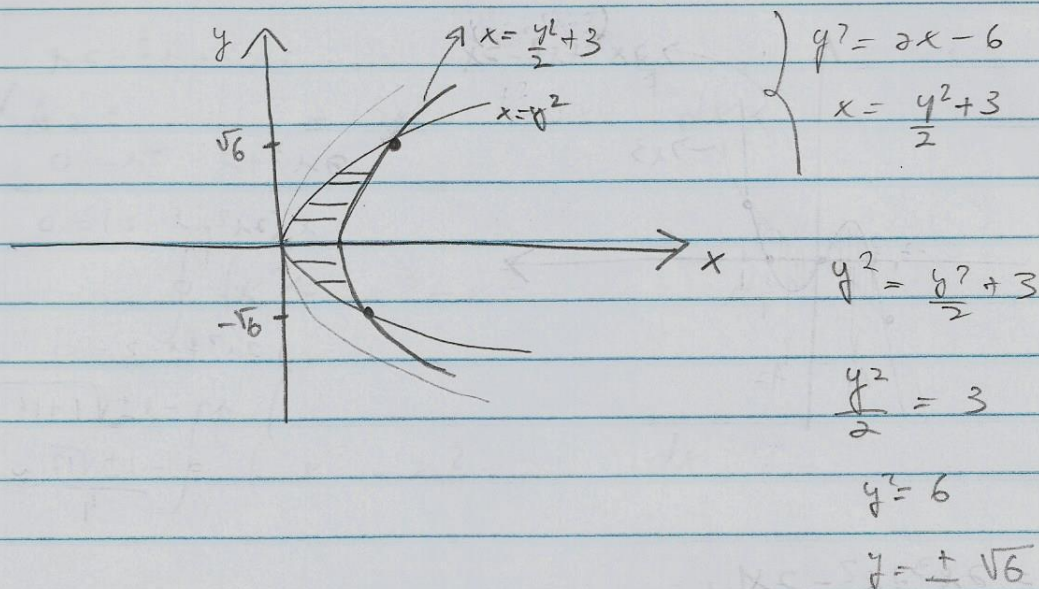 y
x = y²/2 + 3
x = y²
√6
-√6
x
y² = 2x - 6
x = y²/2 + 3
y² = y²/2 + 3
y²/2 = 3
y² = 6
y = ± √6